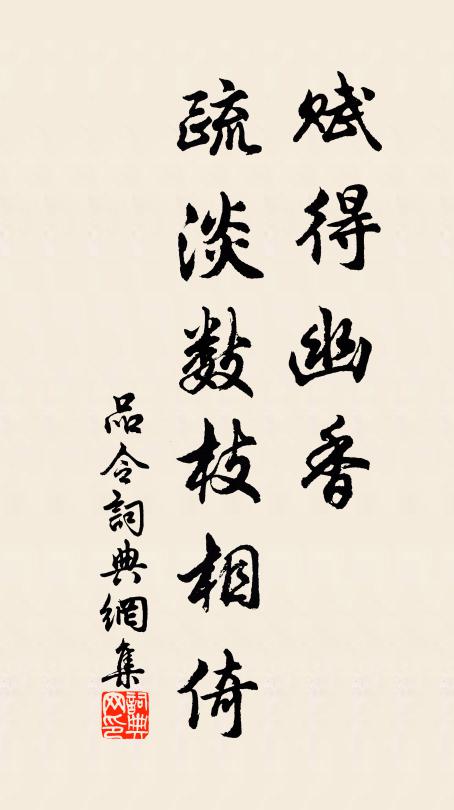 賦得幽香
疏淡數枝相倚
品令詞典網集
詞典網印